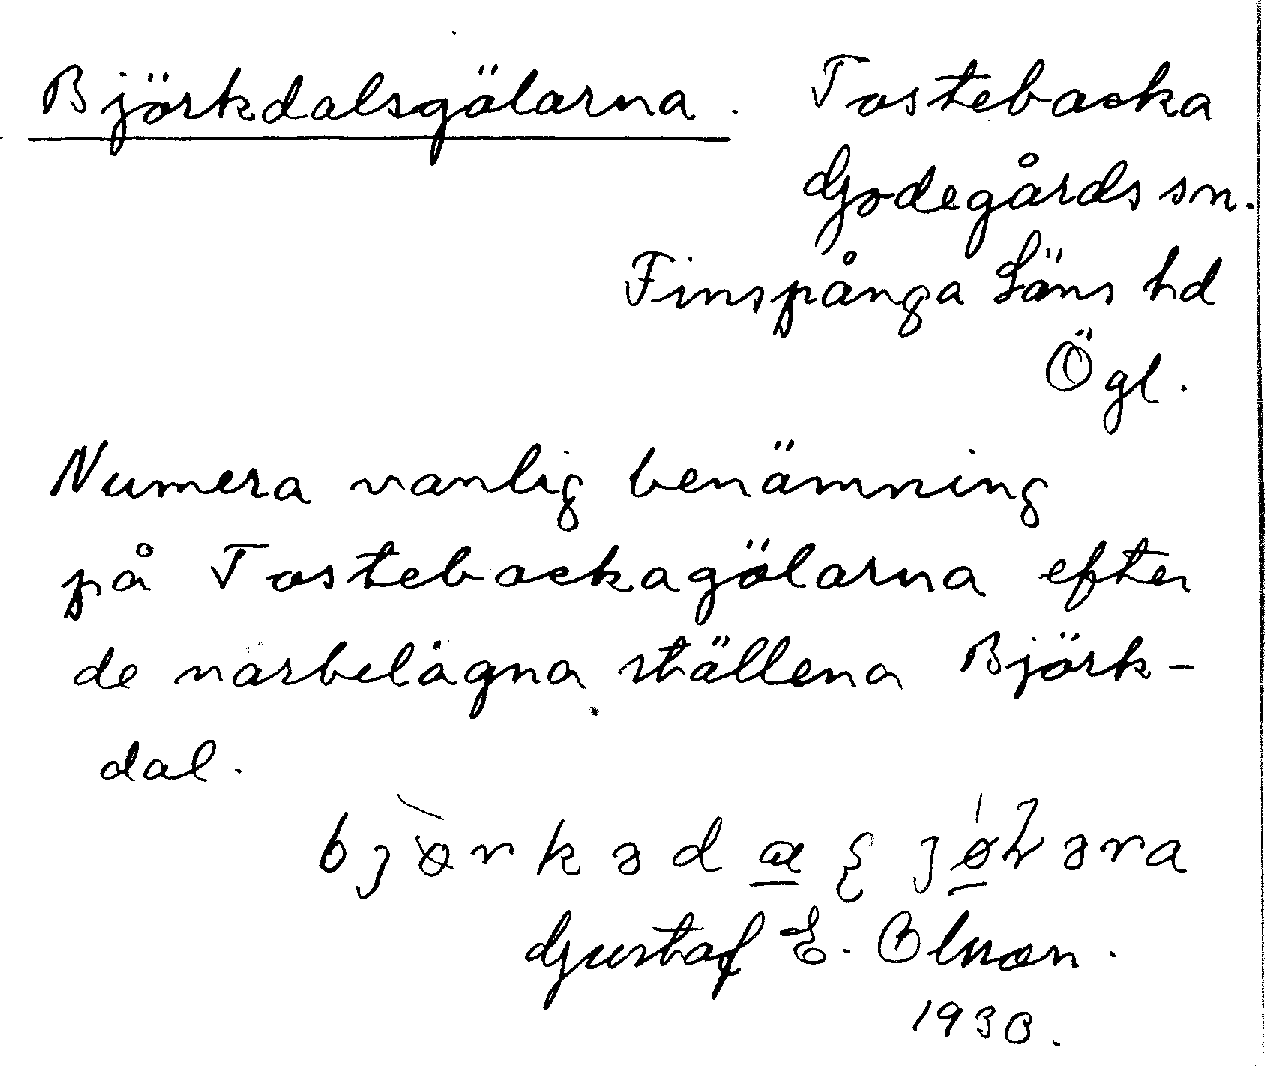 Björkdalsgölarna. Tostebacka
Godegårds sn.
Finspånga Läns hd
Ögl.
Numera vanlig benämning
på Tostebackagölarna efter
de närbelägna ställena Björk-
dal.
Gustaf E. Olsson.
1930.